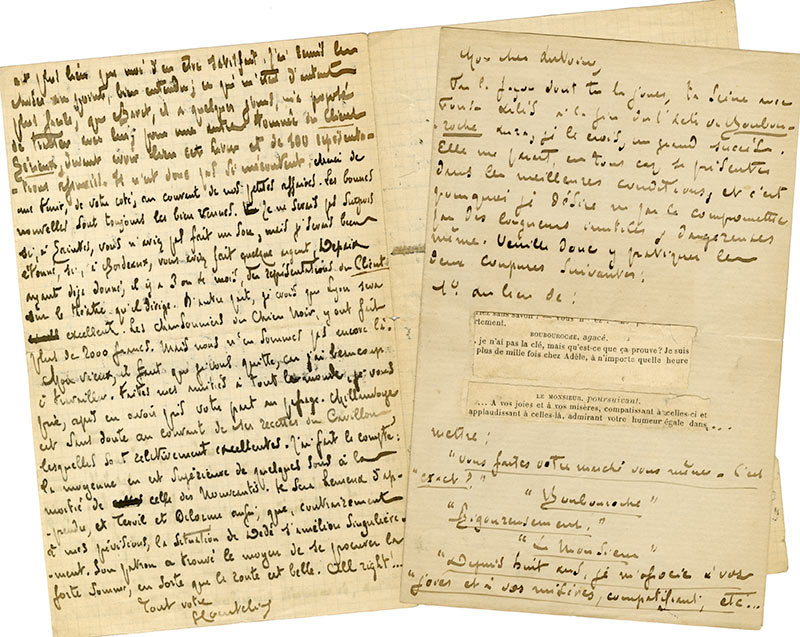 plus bien que moi d'en être satisfait. J'ai remis les
choses au point, bien entendu; ce qui m'était d'autant
plus facile, que Baret, il y a quelques jours, m'a proposé
de traiter avec lui, pour une autre tournée du Client
Sérieux, devant avoir lieu cet hiver et de 100 représenta-
tions
me tenir, de votre coté, au courant de nos petites affaires. Les bonnes
nouvelles sont toujours les bien venues. Je ne serais pas surpris
si, à Saintes, vous n'aviez pas fait un sou; mais je serais bien
étonné, si, à Bordeaux, vous aviez fait quelque argent, Depaix
ayant déjà donné, il y a 3 ou 4 mois, des représentations du Client
sur le théâtre qu'il dirige. D'autre part, je crois que Lyon sera
excellent. Les chansonniers du Chien Noir, y ont fait
plus de 2000 francs. Mais nous n'en sommes pas encore là.
Mon vieux, il faut que je vous quitte, car j'ai beaucoup
à travailler. Faites mes amitiés à tout le monde, je vous
prie, après en avoir pris votre part au passage.
est sans doute au courant de ses recettes du Carillon,
lesquelles sont relativement excellentes. J'ai fait le compte:
la moyenne en est supérieure de quelques sous à la
moitié de celle des Nouveautés. Je
et Tervil et Delorme aussi, que, contrairement
à mes prévisions, la situation de Dédé s'améliore singulière-
ment. Son patron a trouvé le moyen de se procurer la
forte somme, en sorte que la route est belle. All right!...
Tout votre
Mon cher Antoine,
Vu la façon dont tu la joues, ta scène avec
à la fin de l'acte de Boubou-
roche aura, je le crois, un grand succès.
Elle me paraît, en tous cas, se présenter
dans les meilleures conditions, et c'est
pourquoi je désire ne pas la compromettre
par des longueurs inutiles, dangereuses
même. Veuille donc y pratiquer les
deux coupures suivantes:
1º, au lieu de:
rtement.
BOUBOUROCHE, agacé.
. je n'ai pas la clé, mais qu'est-ce que ça prouve? Je suis
plus de mille fois chez Adèle, à n'importe quelle heure
LE MONSIEUR, poursuivant.
... A vos joies et à vos misères, compatissant à celles-ci et
applaudissant à celles-là, admirant votre humeur égale dans ...
mettre:
"vous faites votre marché vous même. C'est
"exact?"
"Boubouroche"
"Rigoureusement."
"Le Monsieur"
"Depuis huit ans, je m'associe à vos
"joies et à vos misères, compatissant, etc...